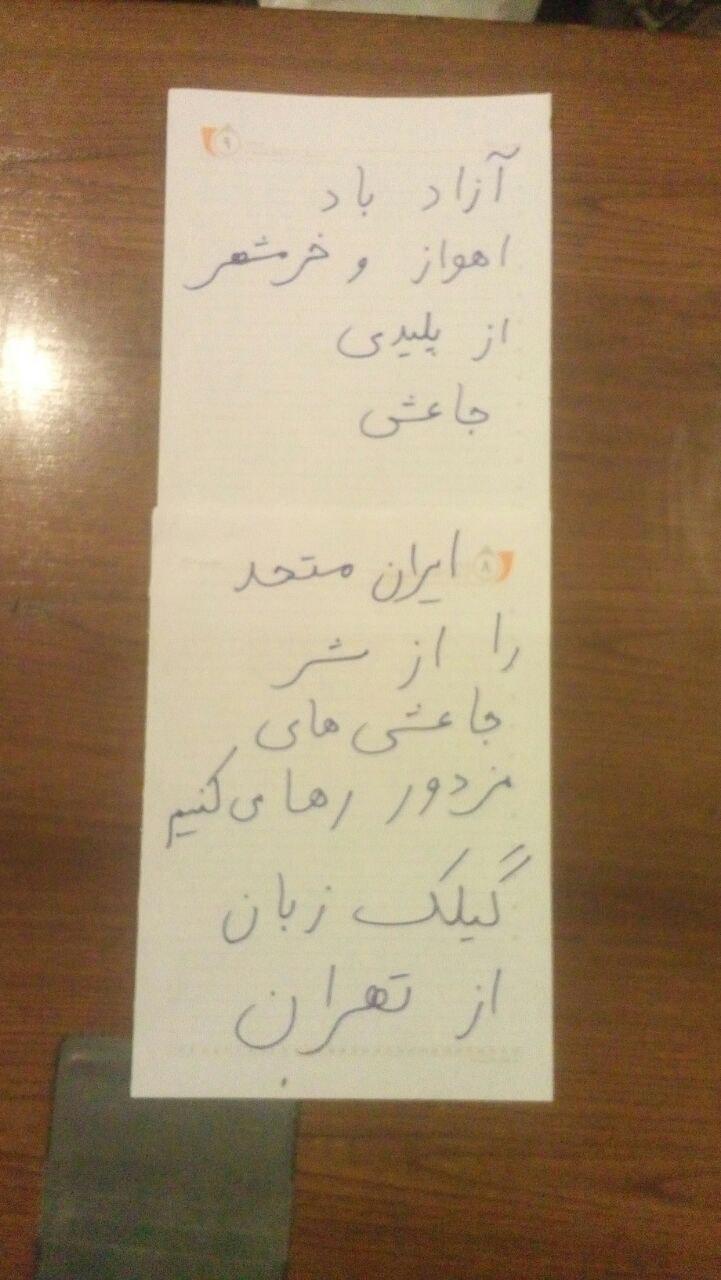 ۹
آزاد باد
اهواز و خرمشهر
از پلیدی
جاعشی
۸
ایران متحد
را از شر
جاعشی های
مزدور رها می کنیم
گیلک زبان
از تهران